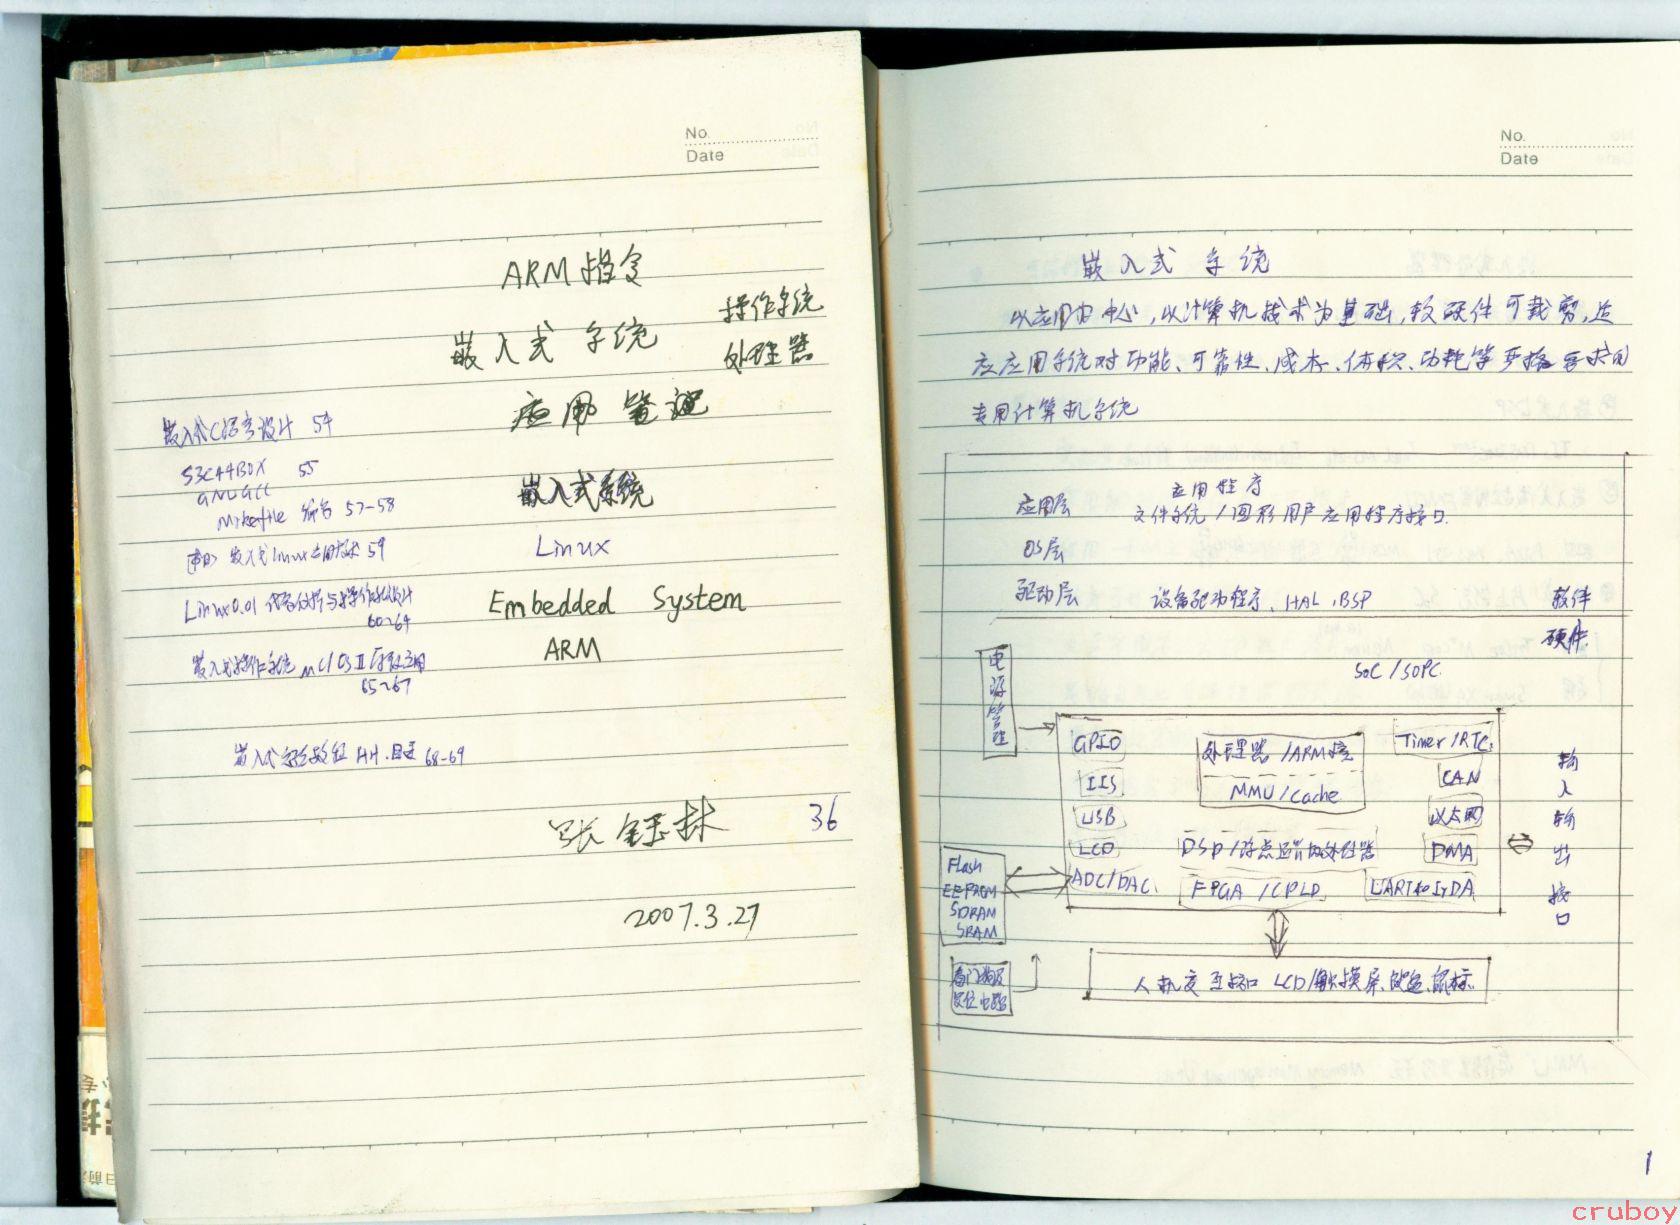 No.
Date
ARM指令
操作系统
嵌入式 系统
处理器
应用笔记
嵌入式C语言设计 54
S3C44B0X 55
GNU GCC
嵌入式系统
Makefile 编写 57-58
Linux
嵌入式linux应用技术 59
Linux0.01 60~64
Embedded System
ARM
嵌入式操作系统 μC/OS II
65~67
嵌入式 68-69
张钰林
36
2007.3.27
No.
Date
嵌入式 系统
以应用为中心,以计算机技术为基础,软硬件可裁剪,适
应应用系统对功能、可靠性、成本、体积、功耗等严格要求的
专用计算机系统
应用层 应用程序
文件系统/图形用户应用程序接口
OS层
驱动层 设备驱动程序、HAL、BSP
软件
硬件
SoC/SOPC
电源管理
GPIO
处理器/ARM核
Timer/RTC
IIS
MMU/Cache
CAN
USB
以太网
LCD
DSP/浮点运算协处理器
DMA
ADC/DAC
FPGA/CPLD
UART和IrDA
输入输出接口
Flash
EEPROM
SDRAM
SRAM
看门狗及
复位电路
人机交互接口 LCD/触摸屏、键盘、鼠标
1
cruboy